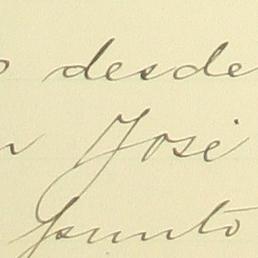 desde
José
punto